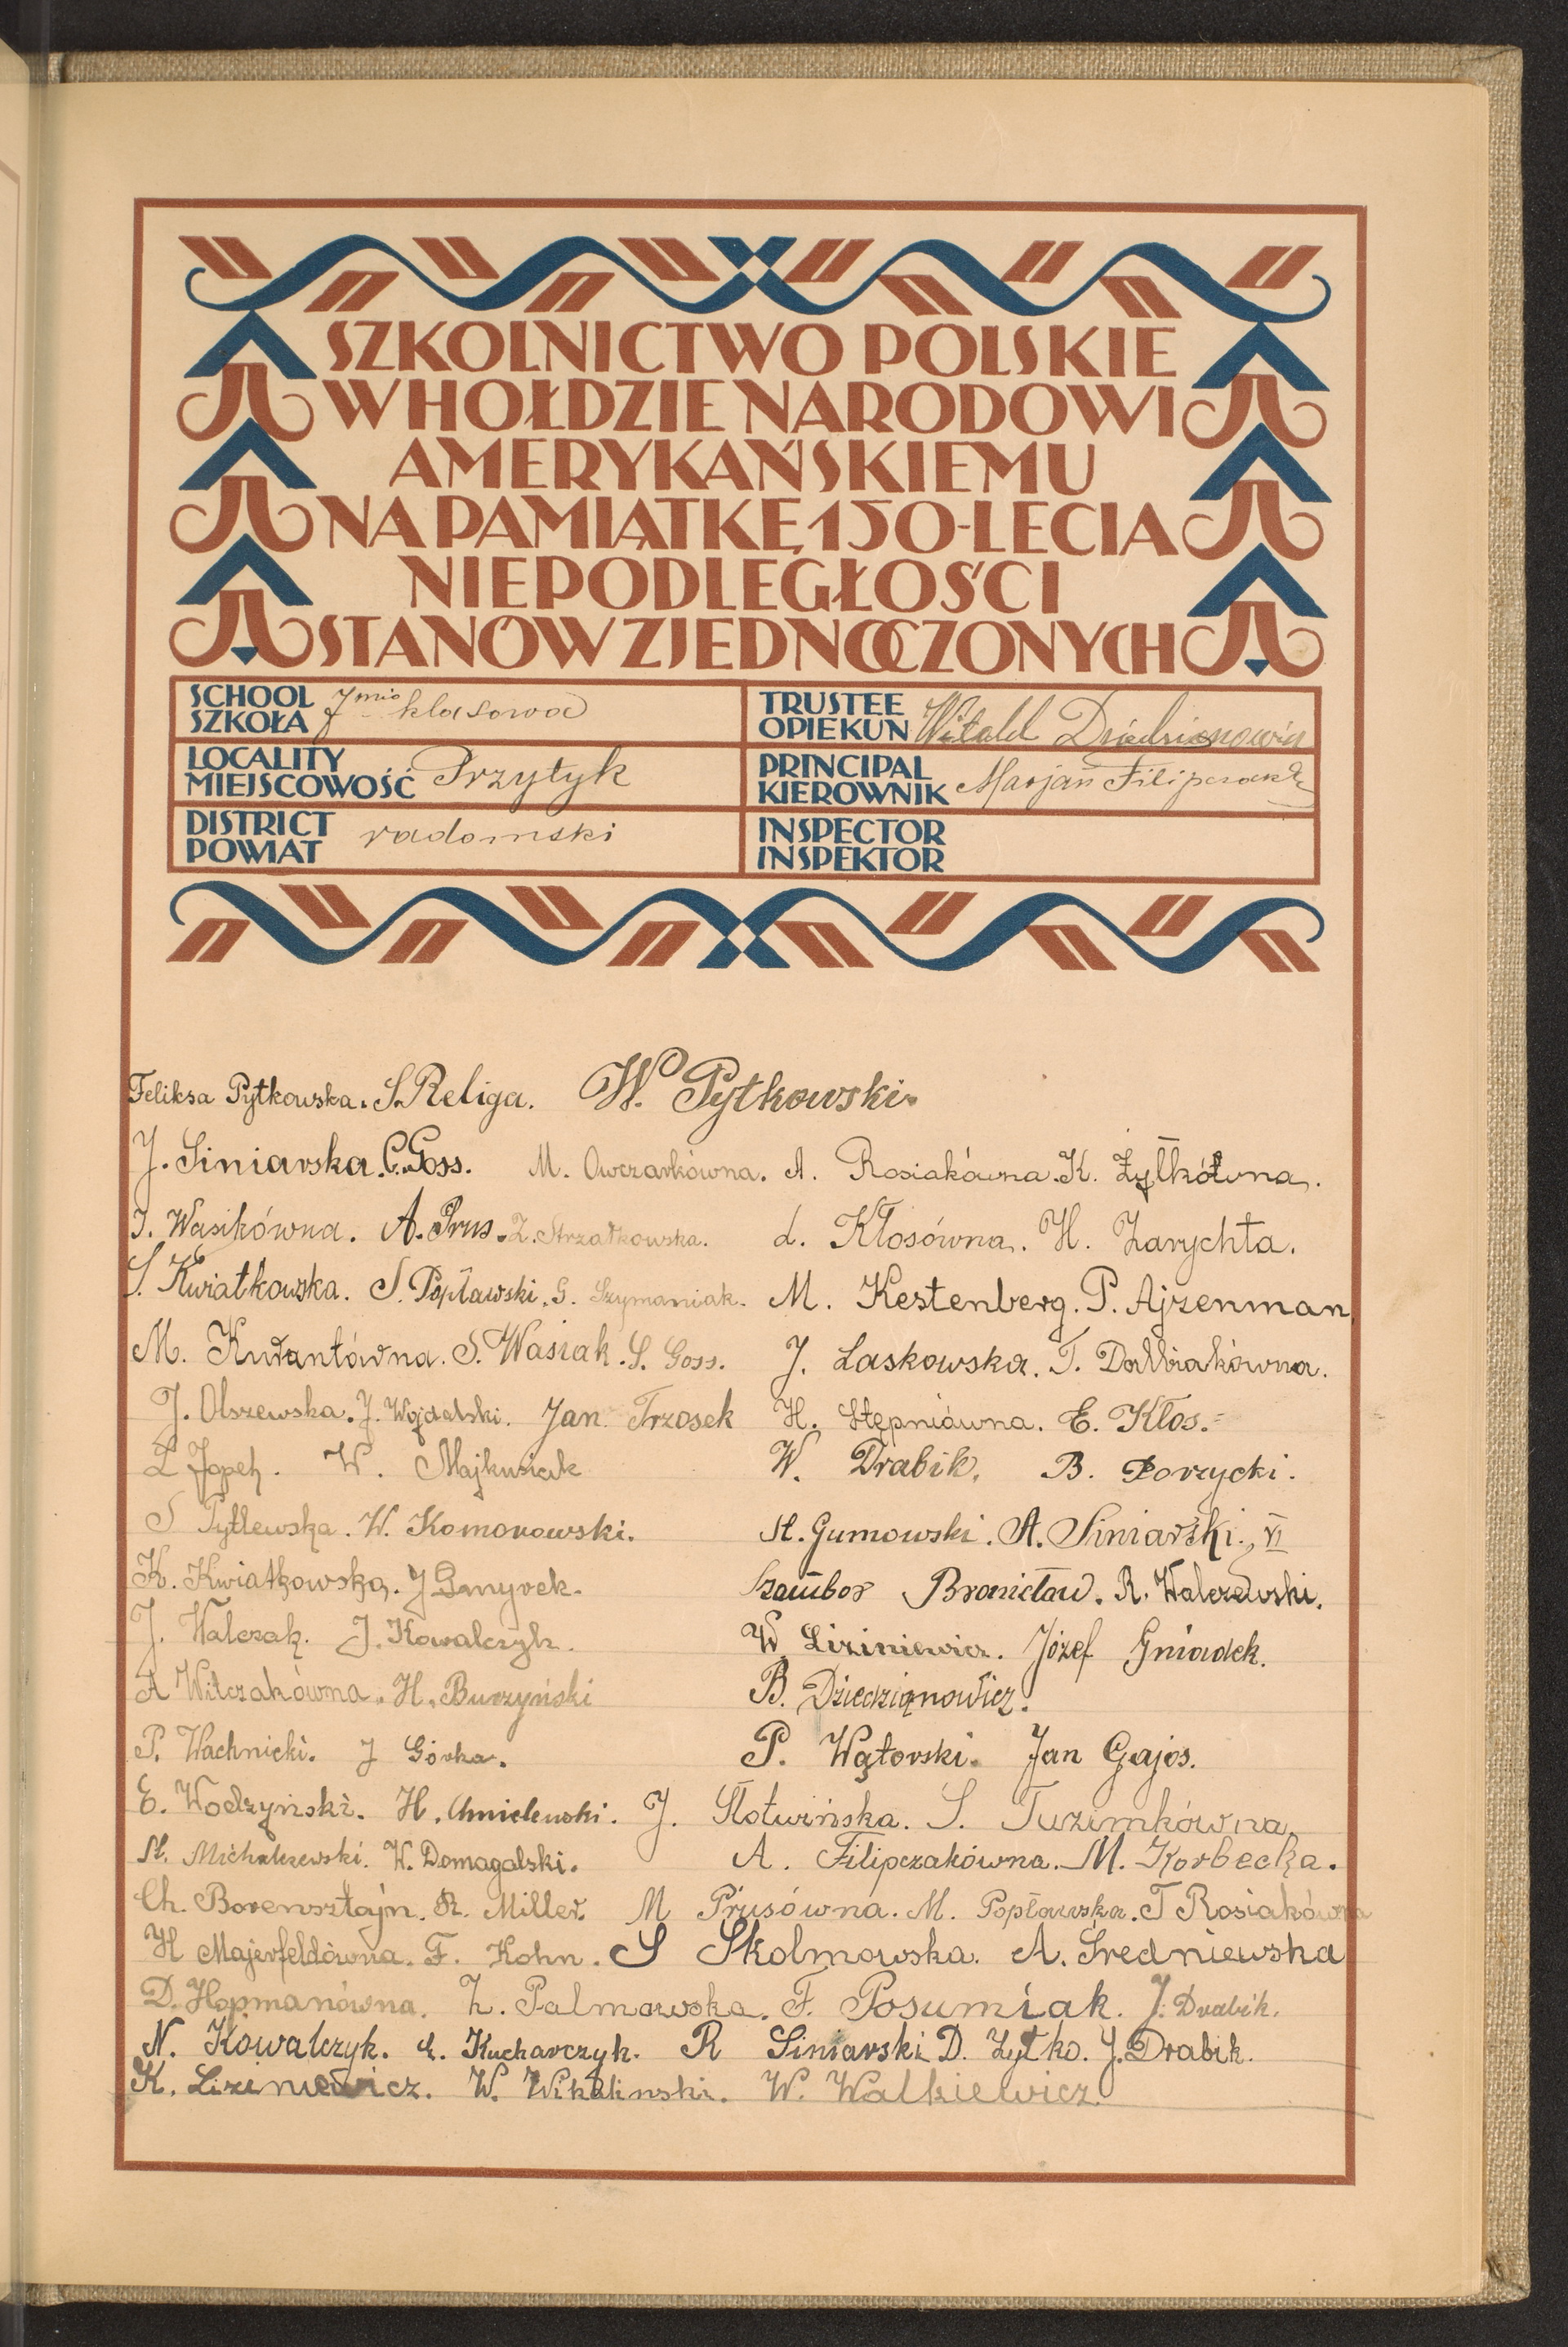 SZKOLNICTWO POLSKIE
W HOŁDZIE NARODOWI
AMERYKAŃSKIEMU
NA PAMIĄTKĘ 150-LECIA
NIEPODLEGŁOŚCI
STANÓW ZJEDNOCZONYCH
SCHOOL SZKOŁA 7mio klasowa
TRUSTEE OPIEKUN Witold
LOCALITY MIEJSCOWOŚĆ Przytyk
PRINCIPAL KIEROWNIK Marjan Filipczak
DISTRICT POWIAT radomski
INSPECTOR INSPEKTOR
Feliksa Pytkowska. S. Religa. W. Pytkowski.
J. Siniarska. C. Goss. M. Owczarkówna. A. Rosiakówna. K. Żytkówna.
J. Wasikówna. A. Prus. Z. Strzałkowska. L. Kłosówna. H. Zarychta.
S. Kwiatkowska. S. Popławski. G. Szymaniak. M. Kestenberg. P. Ajzenman
M. S. Wasiak. S. Goss. J. Laskowska. T.
J. Olszewska. J. Wojdalski. Jan Trzosek H. Stępniówna. E. Kłos.
W. Majkusiak W. Drabik. B. Porzycki.
S Pytlewska. W. Komorowski. St. Gumowski. A. Siniarski. VI
K. Kwiatkowska. J Szambor Bronisław. R. Walczewski.
J. Walczak. J. Kowalczyk. W. Liziniewicz. Józef Gniadek.
A Witczakówna. H. Burzyński B. Dziedzianowicz.
P. Wachnicki. J Górka. P. Wątorski. Jan Gajos.
E. Wodzyński. H. Chmielewski. J. Słotwińska. S. Tuzimkówna.
St. Michalczewski. W. Domagalski. A. Filipczakówna. M. Korbecka.
Ch. Borensztajn. R. Miller. M Prusówna. M. Popławska. T Rosiakówna
H Majerfeldówna. F. Kohn. S Skolmowska. A. Średniewska
D. Hopmanówna. Z. Palmowska. F. Posumiak. J. Drabik.
N. Kowalczyk. E. Kucharczyk. R Siniarski D. Żytko. J. Drabik.
K. Liziniewicz. W. Wikalinski. W. Walkiewicz.